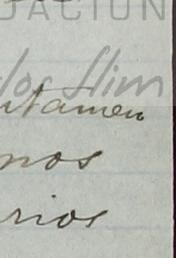 DACIÓN
los Slim
ntamen
nos
rios